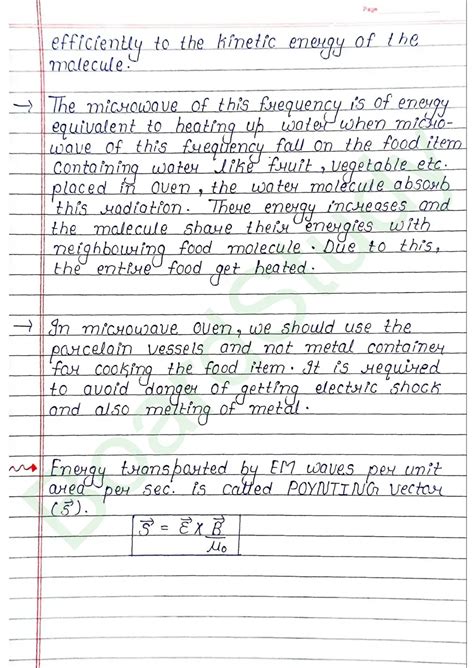 Page
efficiently to the kinetic energy of the
molecule.
→ The microwave of this frequency is of energy
equivalent to heating up water when micro-
wave of this frequency fall on the food item
containing water like fruit, vegetable etc.
placed in oven, the water molecule absorb
this radiation. There energy increases and
the molecule share their energies with
neighbouring food molecule. Due to this,
the entire food get heated.
→ In microwave oven, we should use the
parcelain vessels and not metal container
for cooking the food item. It is required
to avoid danger of getting electric shock
and also melting of metal.
Energy transported by EM waves per unit
area per sec. is called POYNTING vector
(S⃗).
S⃗ = E⃗ × B⃗/μ₀
BoardStudy